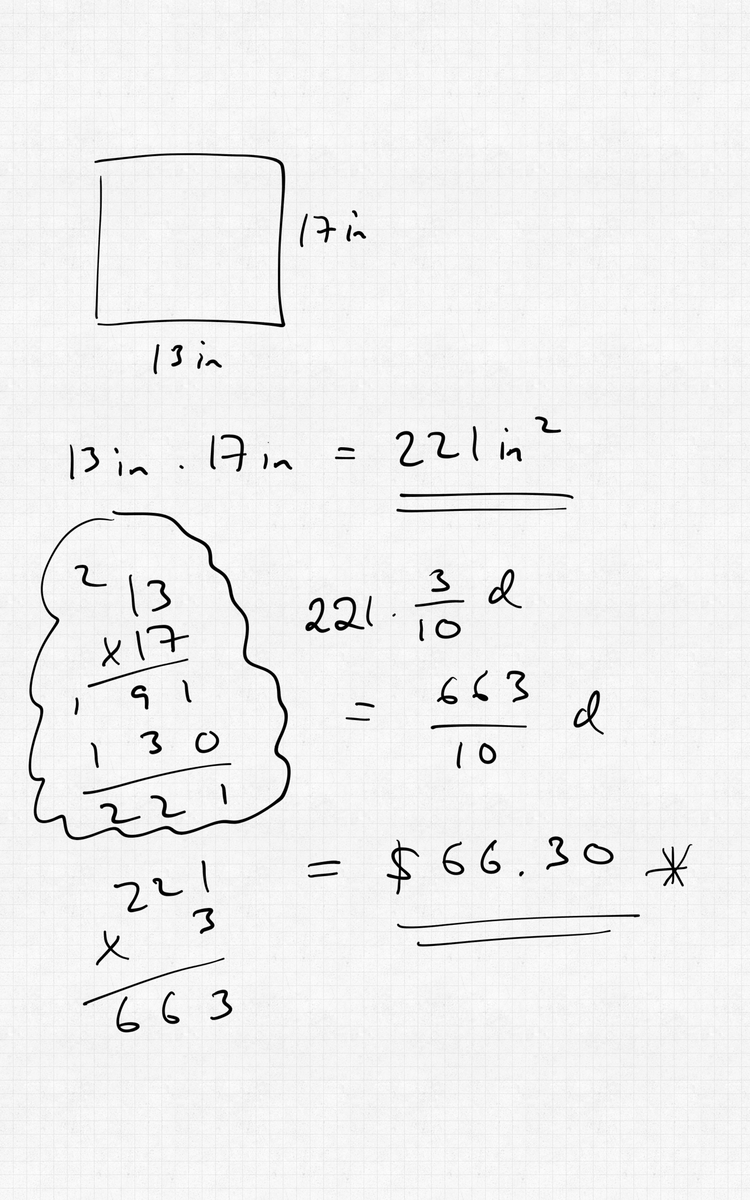 17 in
13 in
13 in . 17 in = 221 in²
2
13
x17
1 91
130
221
221 . 3/10 d
= 663/10 d
= $66.30 *
221
x 3
663